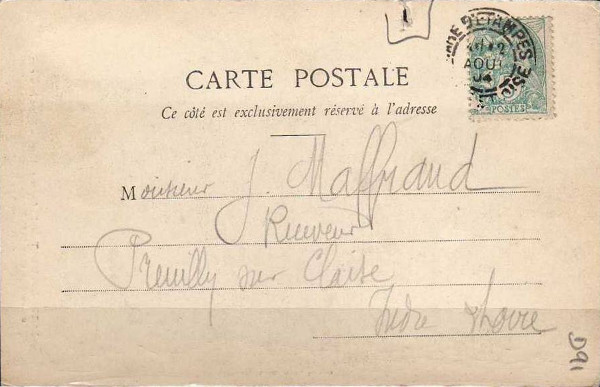 DE D'ÉTAMPES
AOUT
04
OISE
POSTES
CARTE POSTALE
Ce côté est exclusivement réservé à l'adresse
Monsieur J. Maffrand
Receveur
Preuilly sur Claise
Indre & Loire
D91